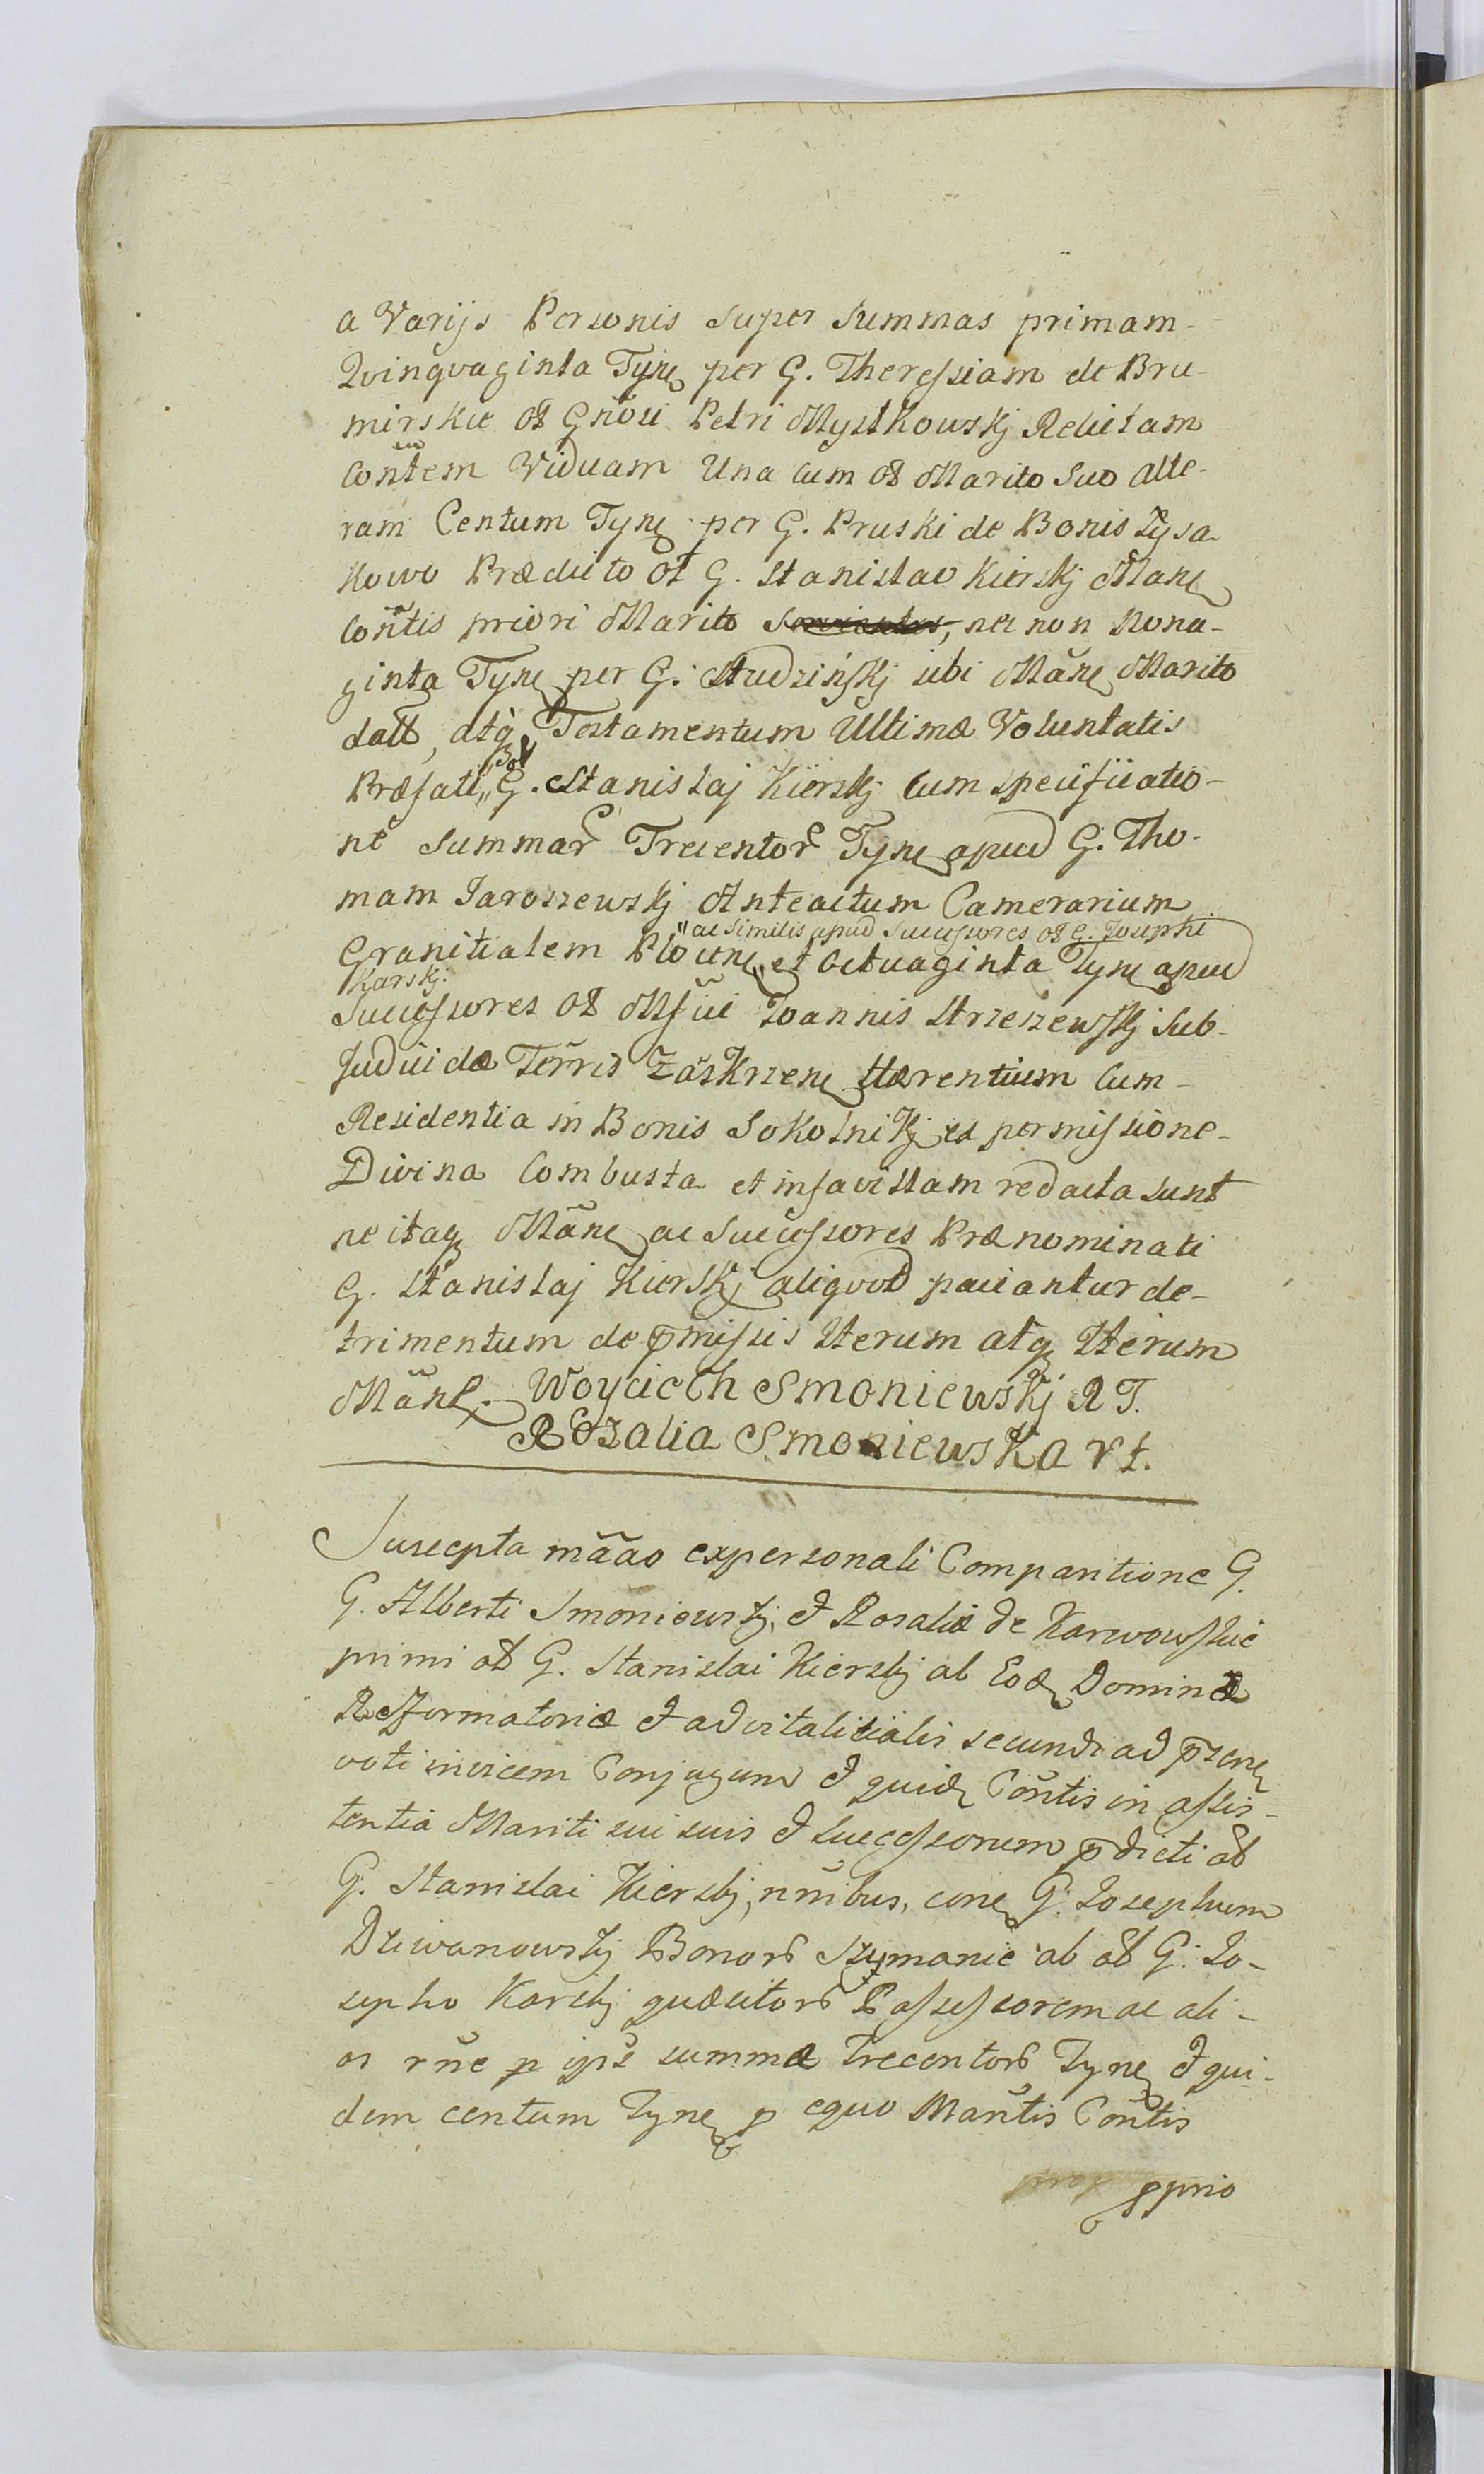 a Varijs Personis super Summas primam-
Qvinqvaginta Tyne per G. Theressiam de Bru-
mirskie o͞l Gnosi Petri Mystkowskj Relictam
Con͠tem Viduam Una cum o͞l Marito Suo alte-
ram Centum Tyne per G. Pruski de Bonis Łysa-
kowo Prædicto o͞l G. Stanislao Kierskj Mane
Con͠tis priori Marito , nec non Nona-
ginta Tyne per G. Studzińskj sibi Mãne Marito
datt, atq Testamentum Ultimæ Voluntatis
Præfati G. Stanislaj Kierskj cum specificatio-
ne Summar Trecentor Tyne apud G. Tho-
mam Jaroszewskj Anteactum Camerarium
"ac similis apud Successores o͞l G. Josephi
Granitialem Plocune "et octuaginta Tyne apud
Karskj.
Successores o͞l Msĩci Joannis Strzeszewskj Sub-
Judicidæ Terris Zaskrzene Hærentium cum-
Residentia in Bonis Sokolnikj ex permissione-
Divina Combusta et in favillam redacta sunt
ne itaq Mãne ac Successores Prænominati
G. Stanislaj Kierskj aliqvod paciantur de-
trimentum de p͞missis Iterum atq Iterum
Mãne. Woyciech Smoniewskj R T.
Rozalia Smoniewska r t.
Suscepta mãao ex personali Comparitione G.
G. Alberti Smoniewskj, et Rosaliæ de Karwowskie
primi o͞l G. Stanislai Kierskj ab Eod Dominæ
Refformatoriæ et advitalitialis secundi ad p͞sene
voti invicem Conjugum et quid Con͠tis in assis-
tentia Mariti sui suis et successorum p͞dicti o͞l
G. Stanislai Kierskj, n͠nibus, cone G. Josephum
Dziwanowskj Bonor Szymanie ab o͞l G: Jo-
sepho Karskj quæsitor Possessorem ac ali-
os r͠ne p ips͠e summæ trecentor Tyne et qui-
dem centum Tyne p equo Man͠tis Con͠tis
pprio